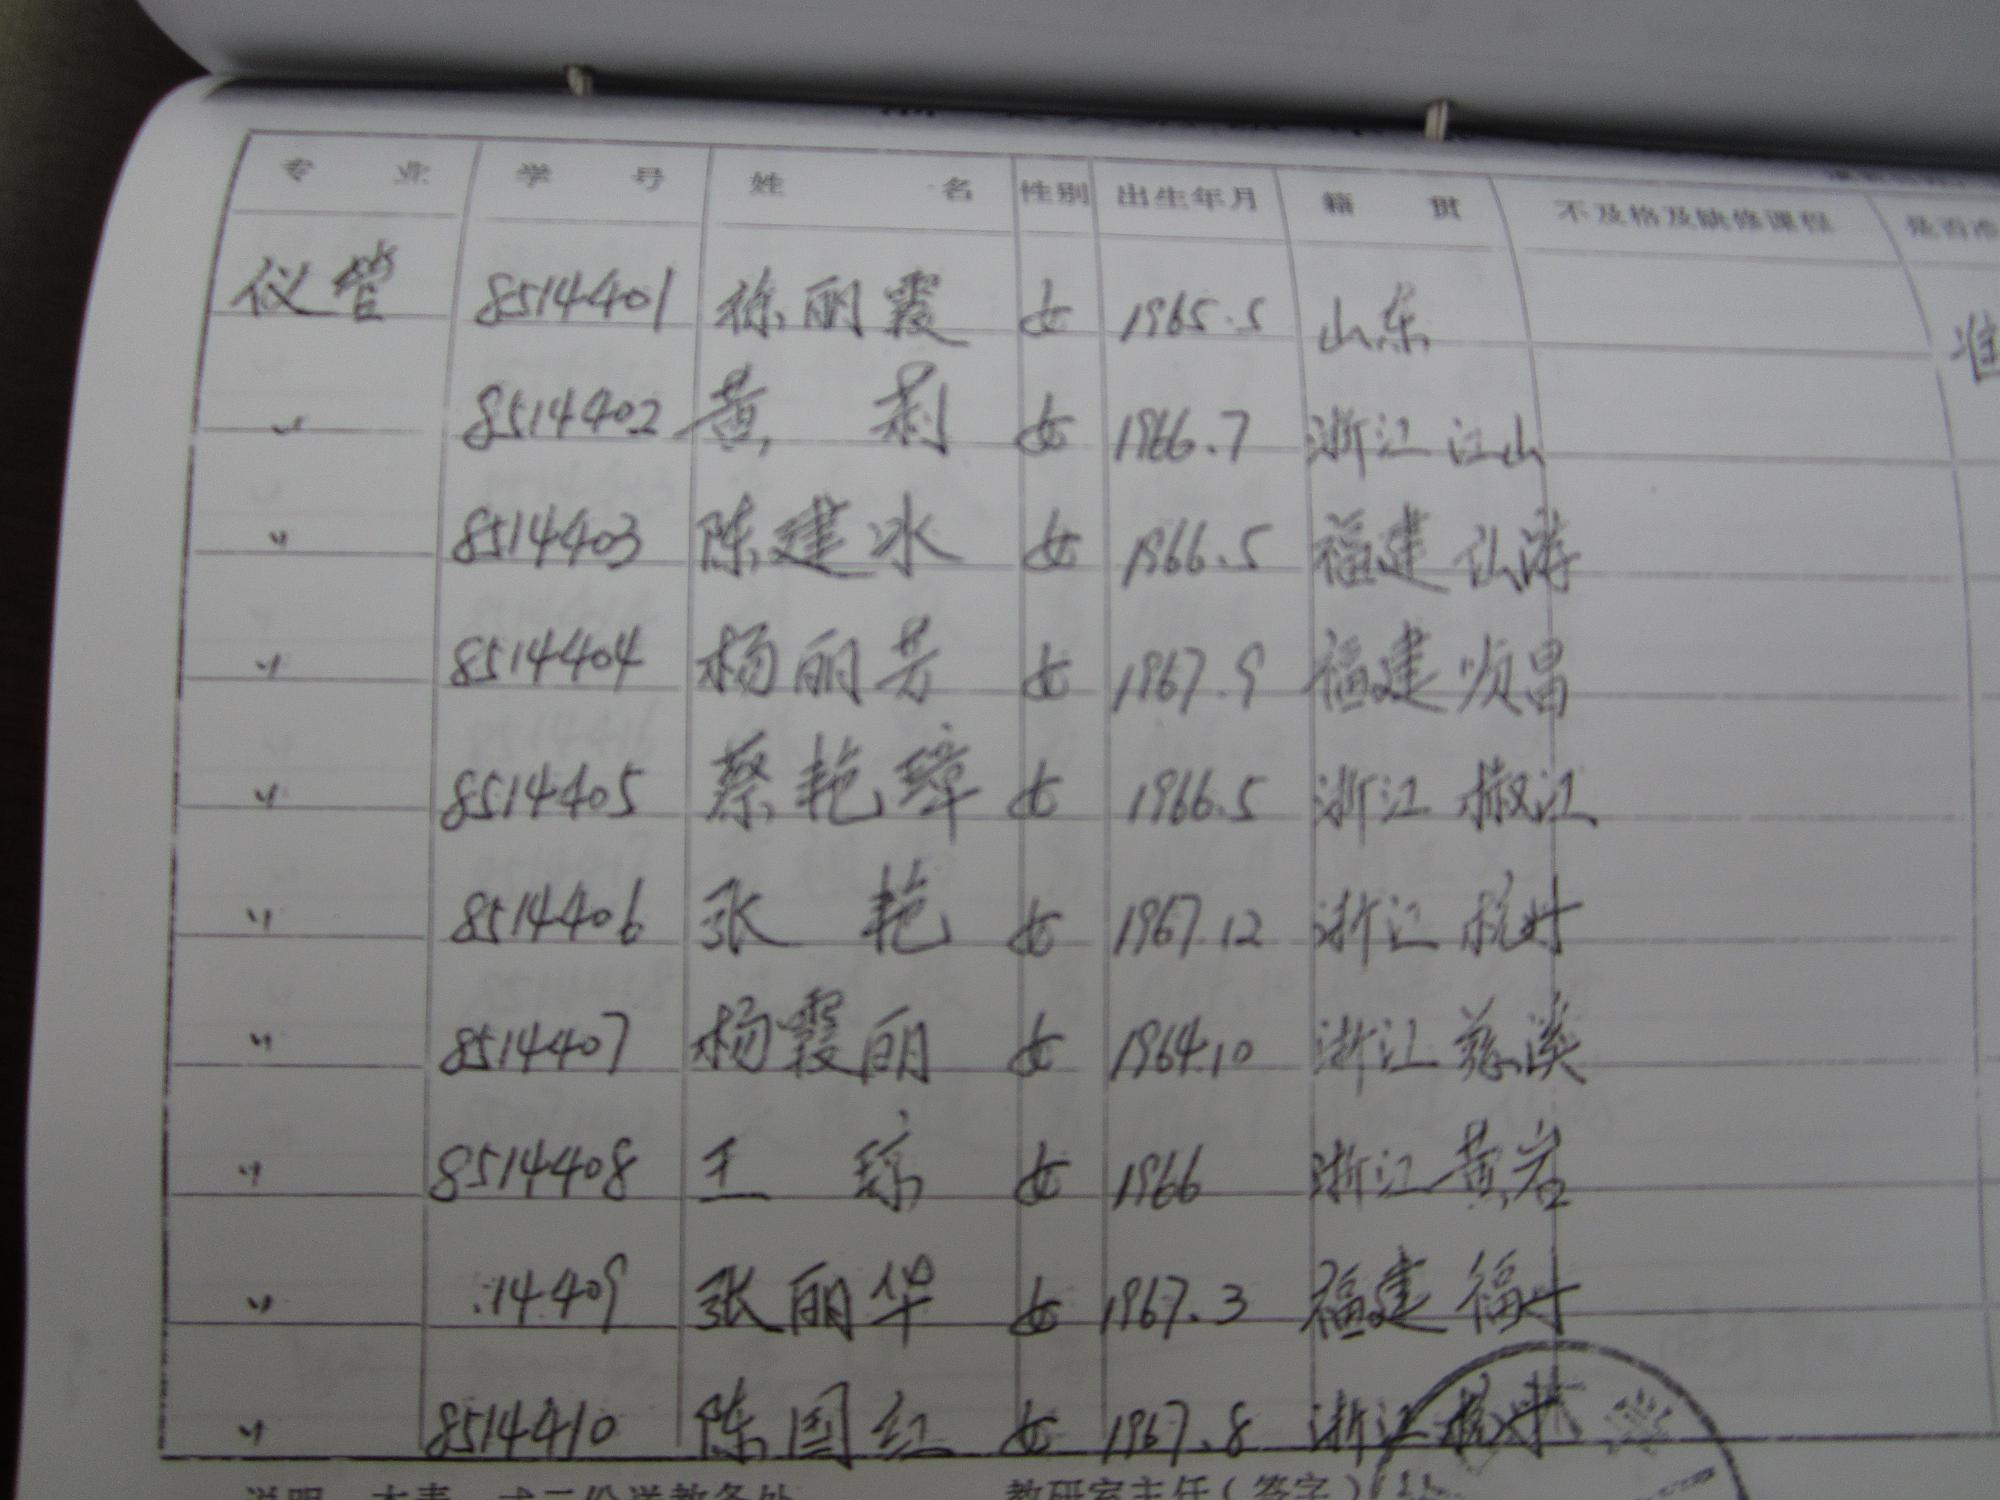 专 业 学 号 姓 名 性别 出生年月 籍 贯 不及格及缺修课程 是否准
仪管 8514401 徐丽霞 女 1965.5 山东 准
〃 8514402 黄 莉 女 1966.7 浙江 江山
〃 8514403 陈建冰 女 1966.5 福建 仙游
〃 8514404 杨丽芳 女 1967.9 福建 顺昌
〃 8514405 蔡艳璋 女 1966.5 浙江 椒江
〃 8514406 张 艳 女 1967.12 浙江 杭州
〃 8514407 杨霞丽 女 1964.10 浙江 慈溪
〃 8514408 王 琼 女 1966 浙江 黄岩
〃 14409 张丽华 女 1967.3 福建 福州
〃 8514410 陈国红 女 1967.8 浙江 杭州
说明 本表一式二份送教务处 教研室主任(签字)